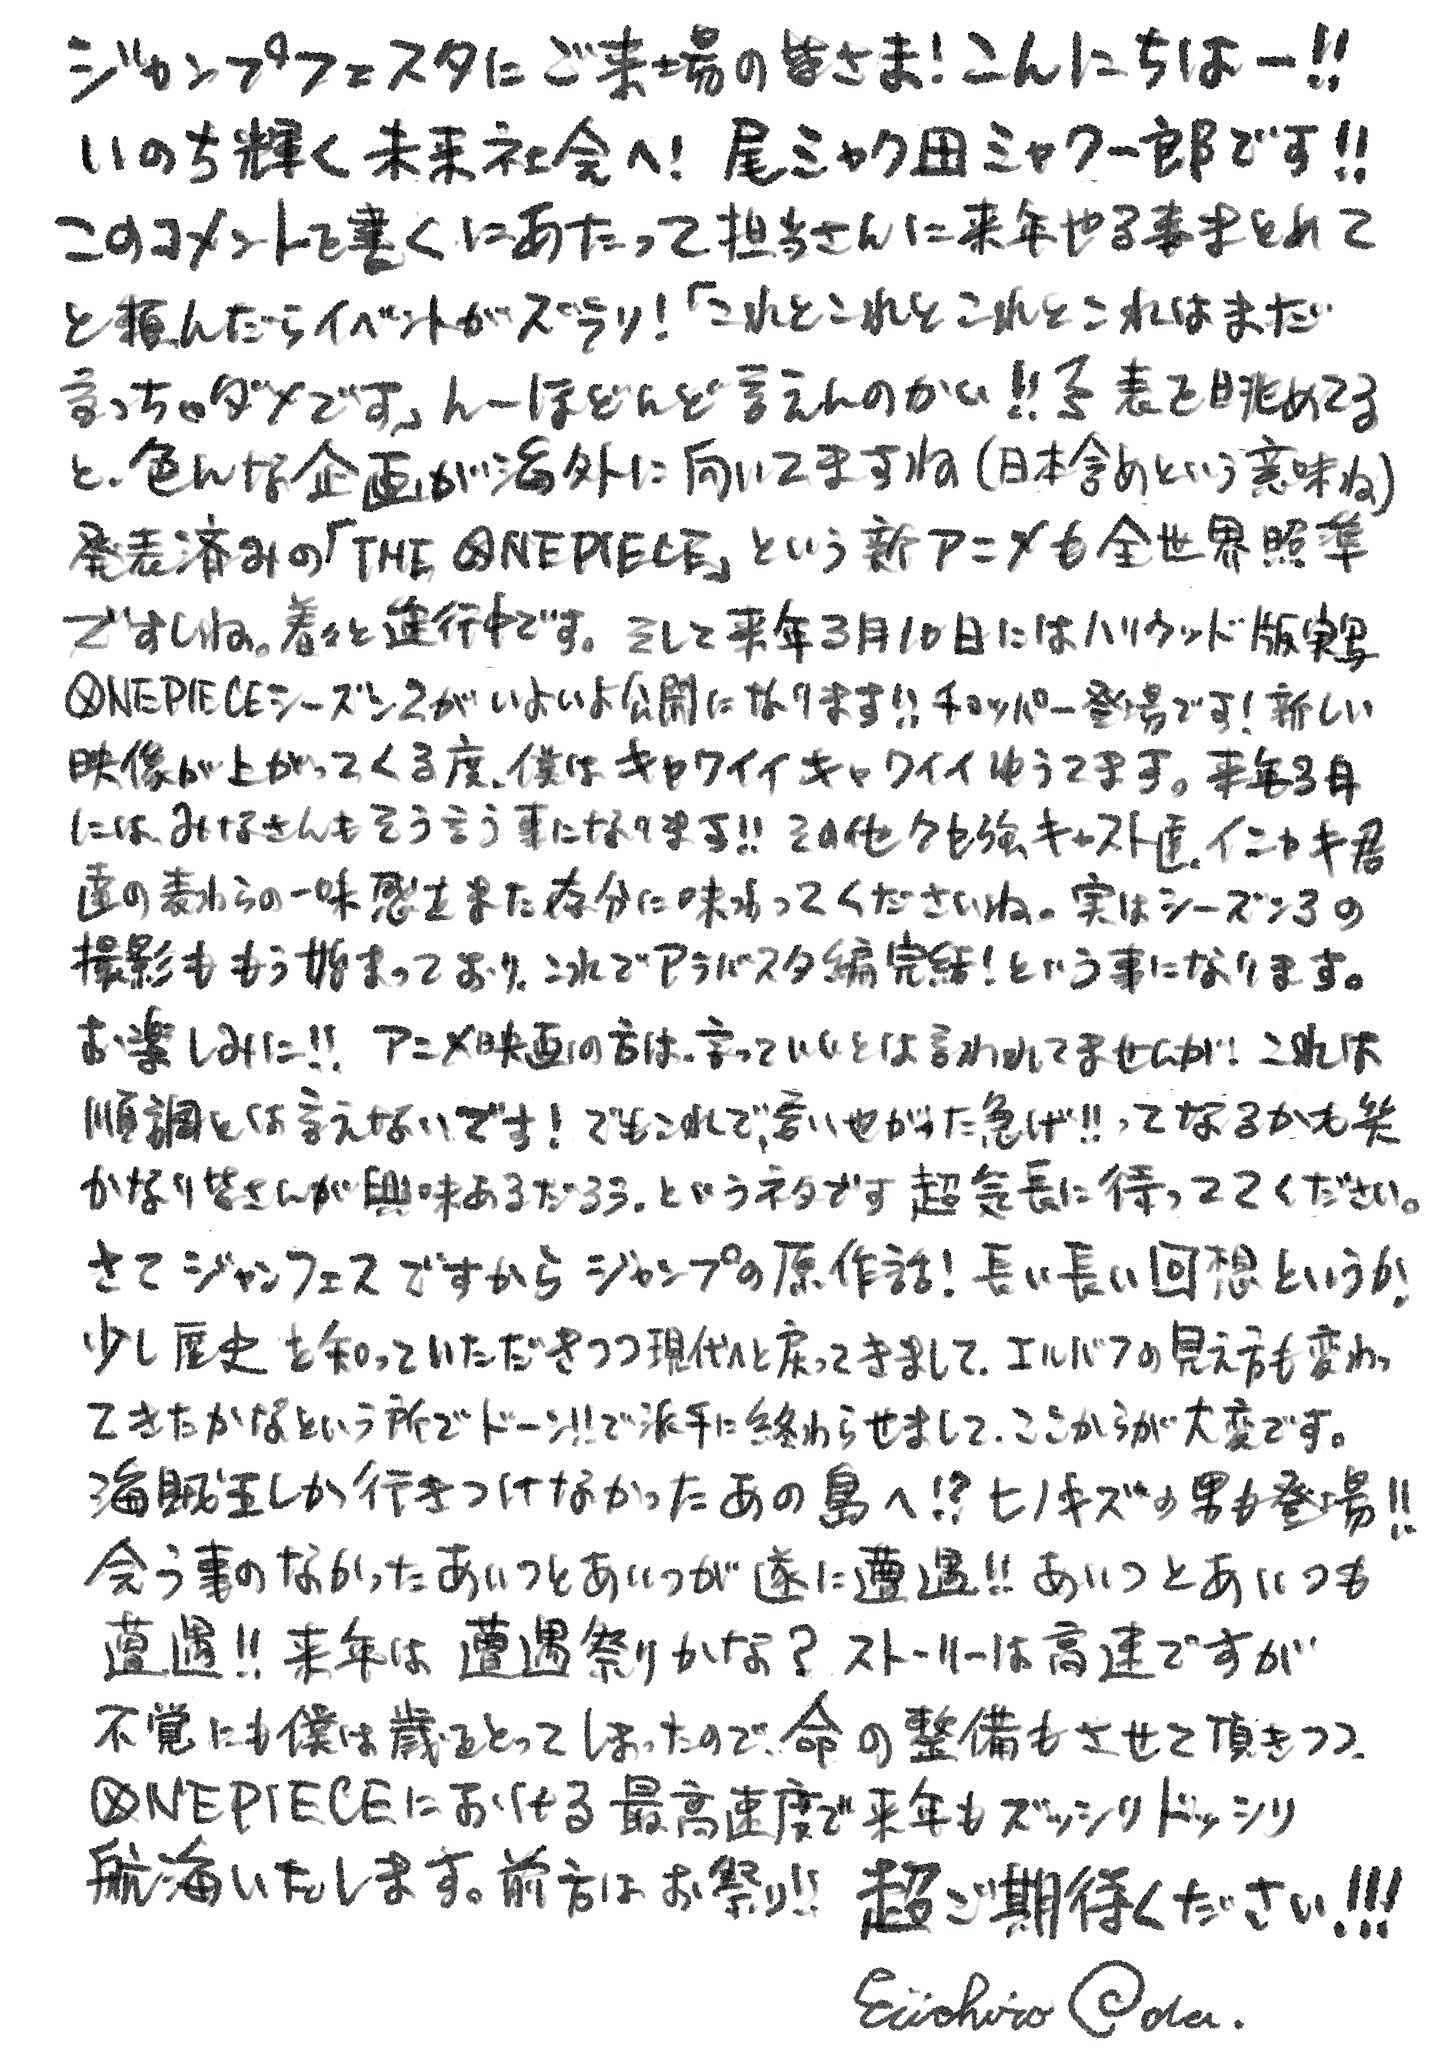 ジャンプフェスタにご来場の皆さま！こんにちはー!!
いのち輝く未来社会へ！尾ミャク田ミャク一郎です!!
このコメントを書くにあたって担当さんに来年やる事まとめて
と頼んだらイベントがズラリ！「これとこれとこれとこれはまだ
言っちゃダメです」んーほとんど言えんのかい!!予表を眺めてる
と、色んな企画が海外に向いてますね(日本含めという意味ね)
発表済みの「THE ONE PIECE」という新アニメも全世界照準
ですしね。着々と進行中です。そして来年3月10日にはハリウッド版実写
ONE PIECEシーズン2がいよいよ公開になります!!チョッパー登場です！新しい
映像が上がってくる度、僕はキャワイイキャワイイゆうてます。来年3月
には、みなさんもそう言う事になります!!その他クセ強キャスト達、イニャキ君
達の麦わらの一味感もまた存分に味わってくださいね。実はシーズン3の
撮影ももう始まっており、これでアラバスタ編完結！という事になります。
お楽しみに!!アニメ映画の方は、言っていいとは言われてませんが！これは
順調とは言えないです！でもこれで、言いやがった急げ!!ってなるかも笑
かなり皆さんが興味あるだろう、というネタです超気長に待っててください。
さてジャンフェスですからジャンプの原作話！長い長い回想というか、
少し歴史を知っていただきつつ現代へと戻ってきまして、エルバフの見え方も変わっ
てきたかなという所でドーン!!で派手に終わらせまして、ここからが大変です。
海賊王しか行きつけなかったあの島へ!?ヒノキズの男も登場!!
会う事のなかったあいつとあいつが遂に遭遇!!あいつとあいつも
遭遇!!来年は遭遇祭りかな？ストーリーは高速ですが
不覚にも僕は歳をとってしまったので、命の整備もさせて頂きつつ、
ONE PIECEにおける最高速度で来年もズッシリドッシリ
航海いたします。前方はお祭り!!超ご期待ください!!!
Eiichiro Oda.